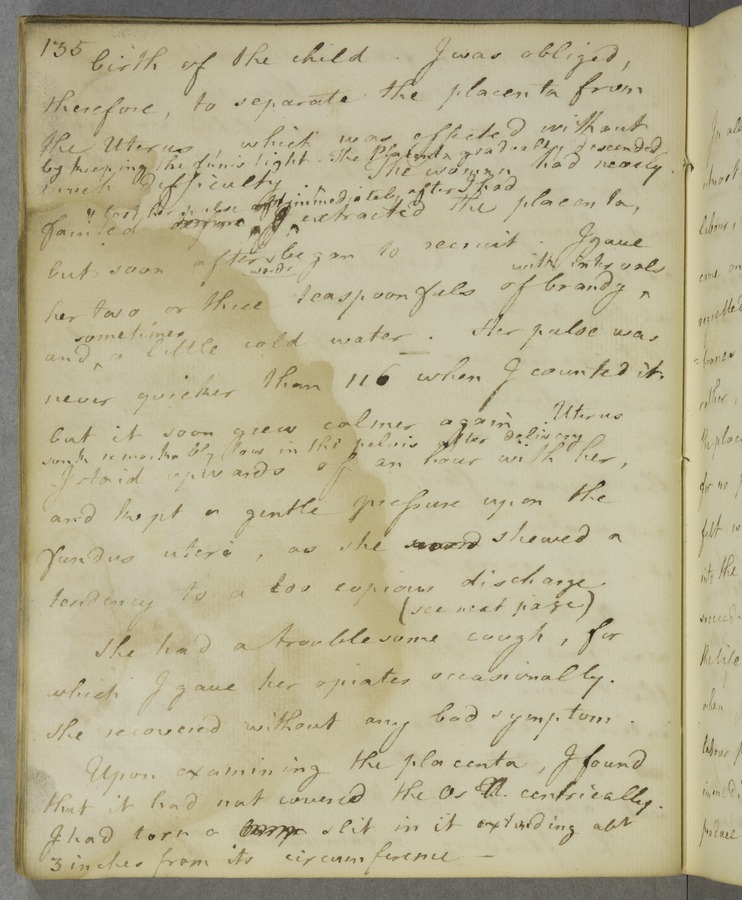 135
birth of the child. I was obliged,
therefore, to separate the placenta from
the Uterus, which was effected without
by keeping the funis tight. The Placenta gradually descended
much difficulty. The woman had nearly
lost her pulse immediately after I had
fainted extracted the placenta,
but soon afterwards began to recruit. I gave
with intervals
her two or three teaspoonfuls of brandy,
sometimes
and a little cold water. Her pulse was
never quicker than 116 when I counted it.
but it soon grew calmer again. Uterus
sunk remarkably low in the pelvis after delivery
I staid upwards of an hour with her,
and kept a gentle pressure upon the
fundus uteri, as she shewed a
tendency to a too copious discharge.
(see next page)
She had a troublesome cough, for
which I gave her opiates occasionally.
She recovered without any bad symptom.
Upon examining the placenta, I found
that it had not covered the Os U. centrically.
I had torn a slit in it extending abt
3 inches from its circumference —